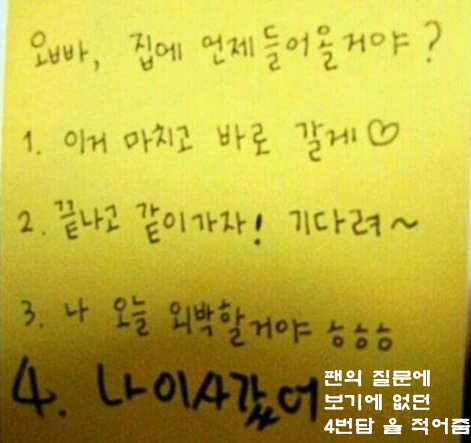 오빠, 집에 언제들어올거야?
1. 이거 마치고 바로 갈게♡
2. 끝나고 같이가자! 기다려~
3. 나 오늘 외박할거야 ㅎㅎㅎ
4. 나 이사갔어
팬의 질문에
보기에 없던
4번답 을 적어줌